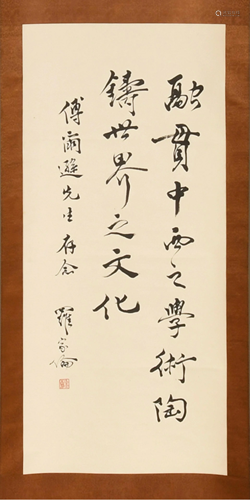 融貫中西之學術陶
鑄世界之文化
傅爾遜先生存念
羅家倫